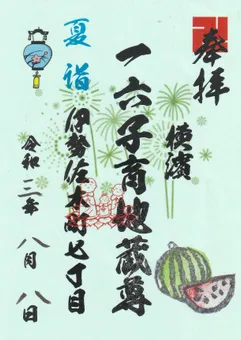 奉拝
横濱
一六子育地蔵尊
夏詣
伊勢佐木町七丁目
令和二年
八月八日